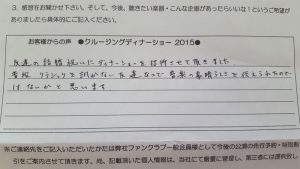 3. 感想をお聞かせ下さい。そして、今後、聴きたい楽器・こんな企画があったらいいな!というご希望が
ありましたら具体的にご記入ください。
お客様からの声 ●クルージングディナーショー 2015●
友達の結婚祝いにディナーショーを招待させて頂きました
普段 クラシックを聞かない友達なので音楽の素晴らしさを伝えられたので
はないかと思います
※ご連絡先をご記入いただいたかたは弊社ファンクラブ一般会員様として今後の公演の先行予約・特別割
引をご案内させて頂きます。尚、記載頂いた個人情報は、当社にて厳重に管理し、第三者には提供致し